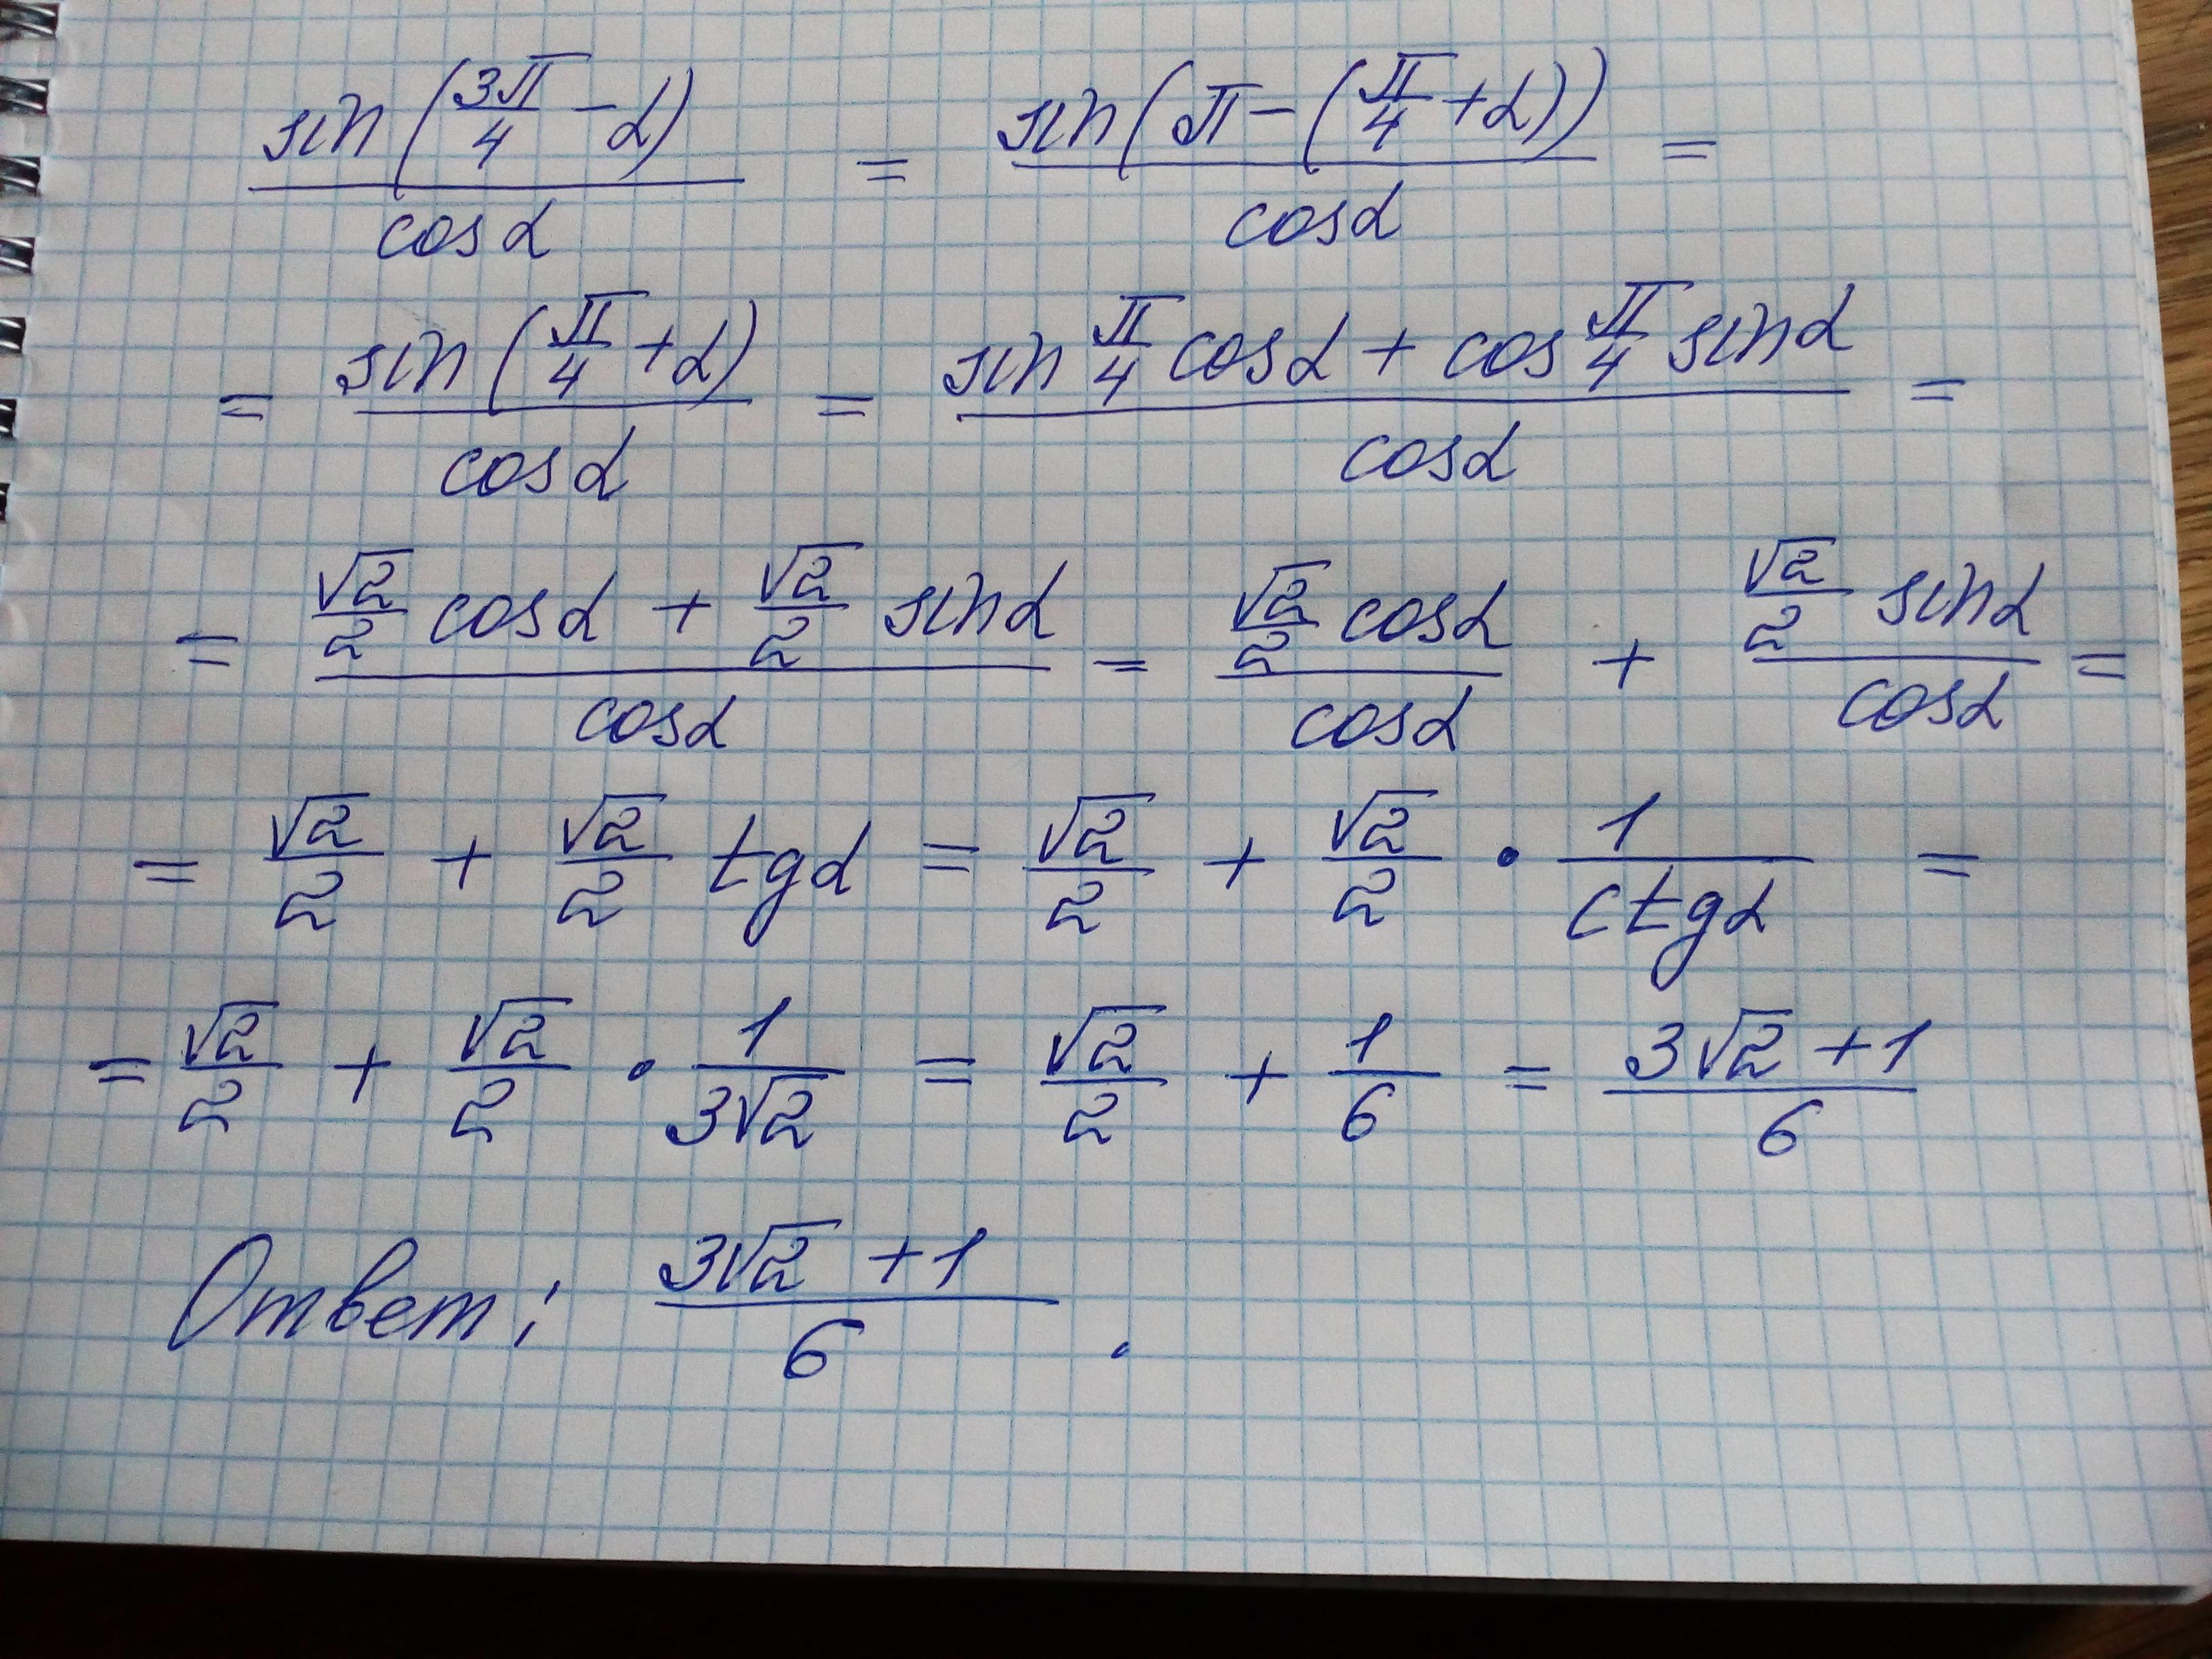 sin(3π/4 - α)/cosα = sin(π - (π/4 + α))/cosα =
= sin(π/4 + α)/cosα = (sin π/4 cosα + cos π/4 sinα)/cosα =
= (√2/2 cosα + √2/2 sinα)/cosα = (√2/2 cosα)/cosα + (√2/2 sinα)/cosα =
= √2/2 + √2/2 tgα = √2/2 + √2/2 · 1/ctgα =
= √2/2 + √2/2 · 1/(3√2) = √2/2 + 1/6 = (3√2 + 1)/6
Ответ: (3√2 + 1)/6.